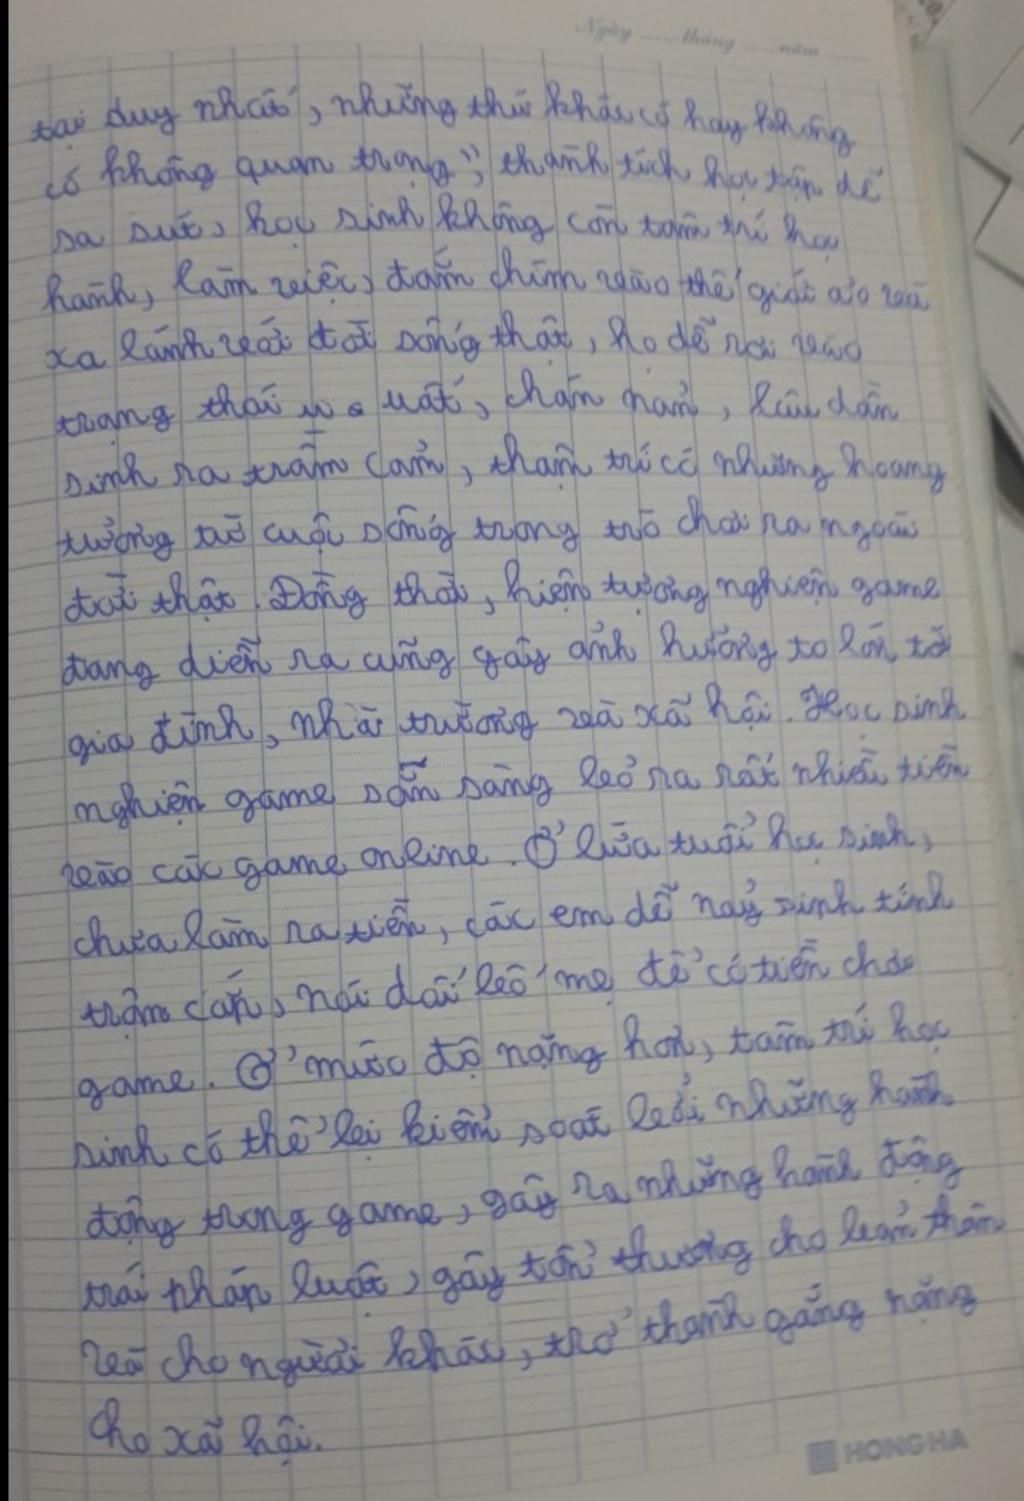 Ngày tháng năm
tại duy nhất, những thứ khác có hay không
có không quan trọng", thành tích học tập dễ
sa sút, học sinh không còn tâm trí học
hành, làm việc, đắm chìm vào thế giới ảo và
xa lánh với đời sống thật, họ dễ rơi vào
trạng thái u uất, chán nản, lâu dần
sinh ra trầm cảm, thậm trí có những hoang
tưởng từ cuộc sống trong trò chơi ra ngoài
đời thật. Đồng thời, hiện tượng nghiện game
đang diễn ra cũng gây ảnh hưởng to lớn tới
gia đình, nhà trường và xã hội. Học sinh
nghiện game sẵn sàng bỏ ra rất nhiều tiền
vào các game online. Ở lứa tuổi học sinh,
chưa làm ra tiền, các em dễ nảy sinh tính
trộm cắp, nói dối bố mẹ để có tiền chơi
game. Ở mức độ nặng hơn, tâm trí học
sinh có thể bị kiểm soát bởi những hành
động trong game, gây ra những hành động
trái pháp luật, gây tổn thương cho bản thân
và cho người khác, trở thành gánh nặng
cho xã hội.
HONG HA